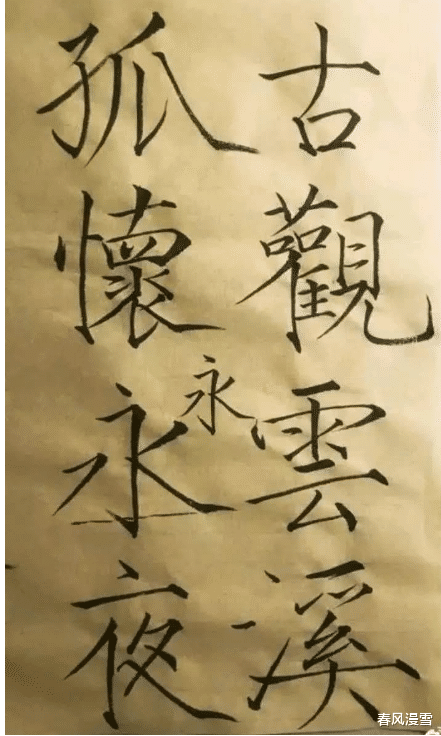 古觀雲溪
孤懷永夜
永
春风漫雪